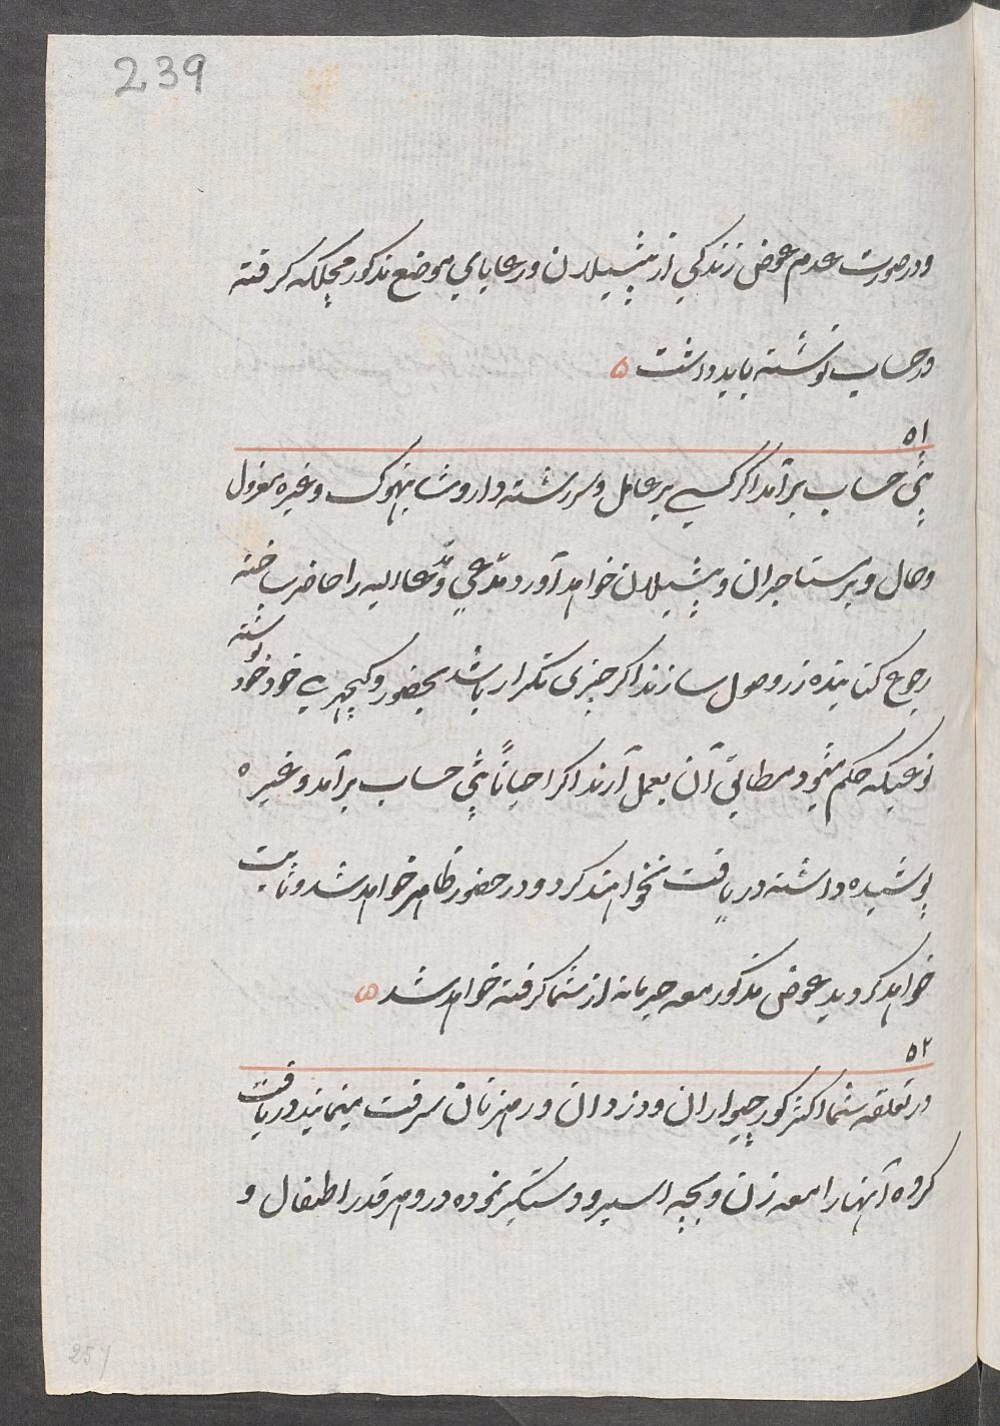 239
ودر صورت عدم عوض زندگی از پتیلان و رعایای موضع مذکور مچلکه گرفته
در حساب نوشته باید داشت ۵
۵۱
حساب برآمد اگر کسی بر عامل و سررشته‌دار و شانبهوک و غیره معزول
و حال و بر مستاجران و پتیلان خواهد آورد مدعی و مدعاالیه را حاضر ساخته
رجوع کنانیده زر وصول سازند اگر چیزی تکرار باشد بحضور و کچهری خود نوشته
نوعیکه حکم شود مطابق آن بعمل آرند اگر احیاناً حساب برآمد و غیره
پوشیده داشته دریافت نخواهند کرد و در حضور ظاهر خواهد شد و ثابت
خواهد گردید عوض مذکور معه جرمانه از شما گرفته خواهد شد ۵
۵۲
در تعلقه شما اکثر کورچیواران و دزدان و رهزنان سرقت مینمایند دریافت
کرده آنها را معه زن و بچه اسیر و دستگیر نموده درو هر قدر اطفال و
257